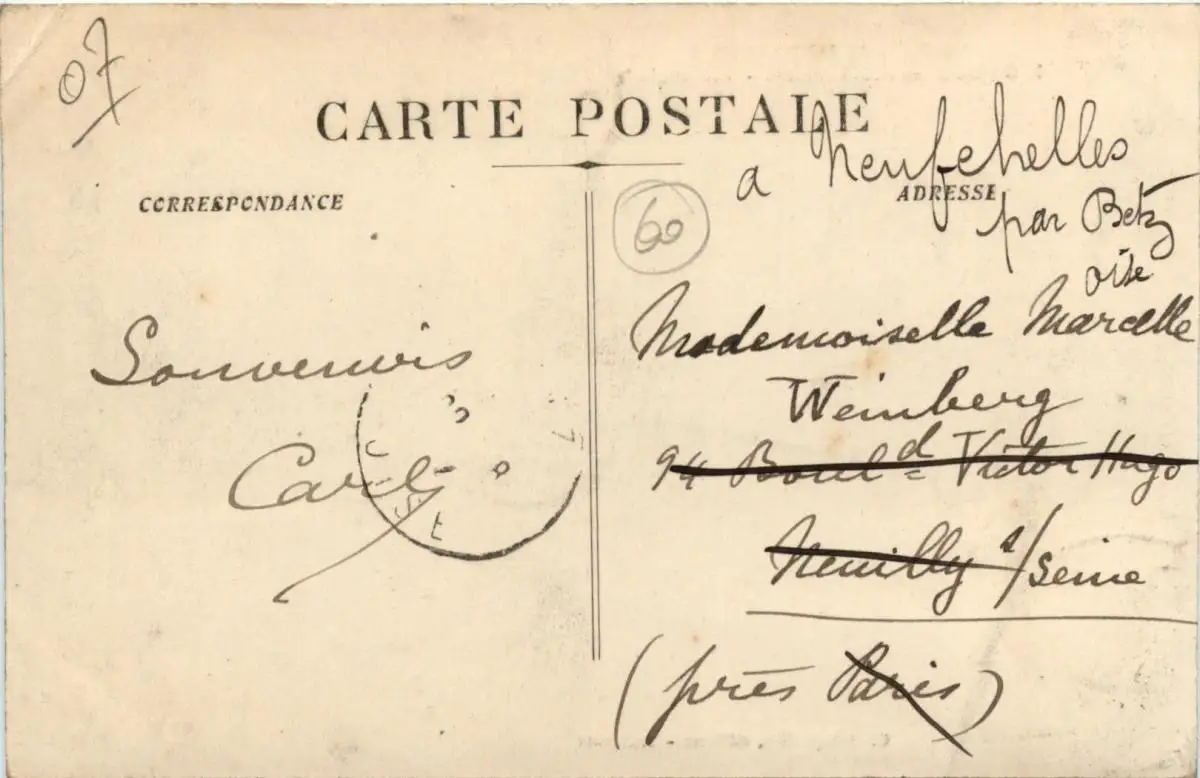 07
CARTE POSTALE
CORRESPONDANCE
ADRESSE
60
a Neufchelles
par Betz
Oise
Souvenirs
Carl
Mademoiselle Marcelle
Weinberg
94 Bould Victor Hugo
Neuilly s/Seine
(près Paris)